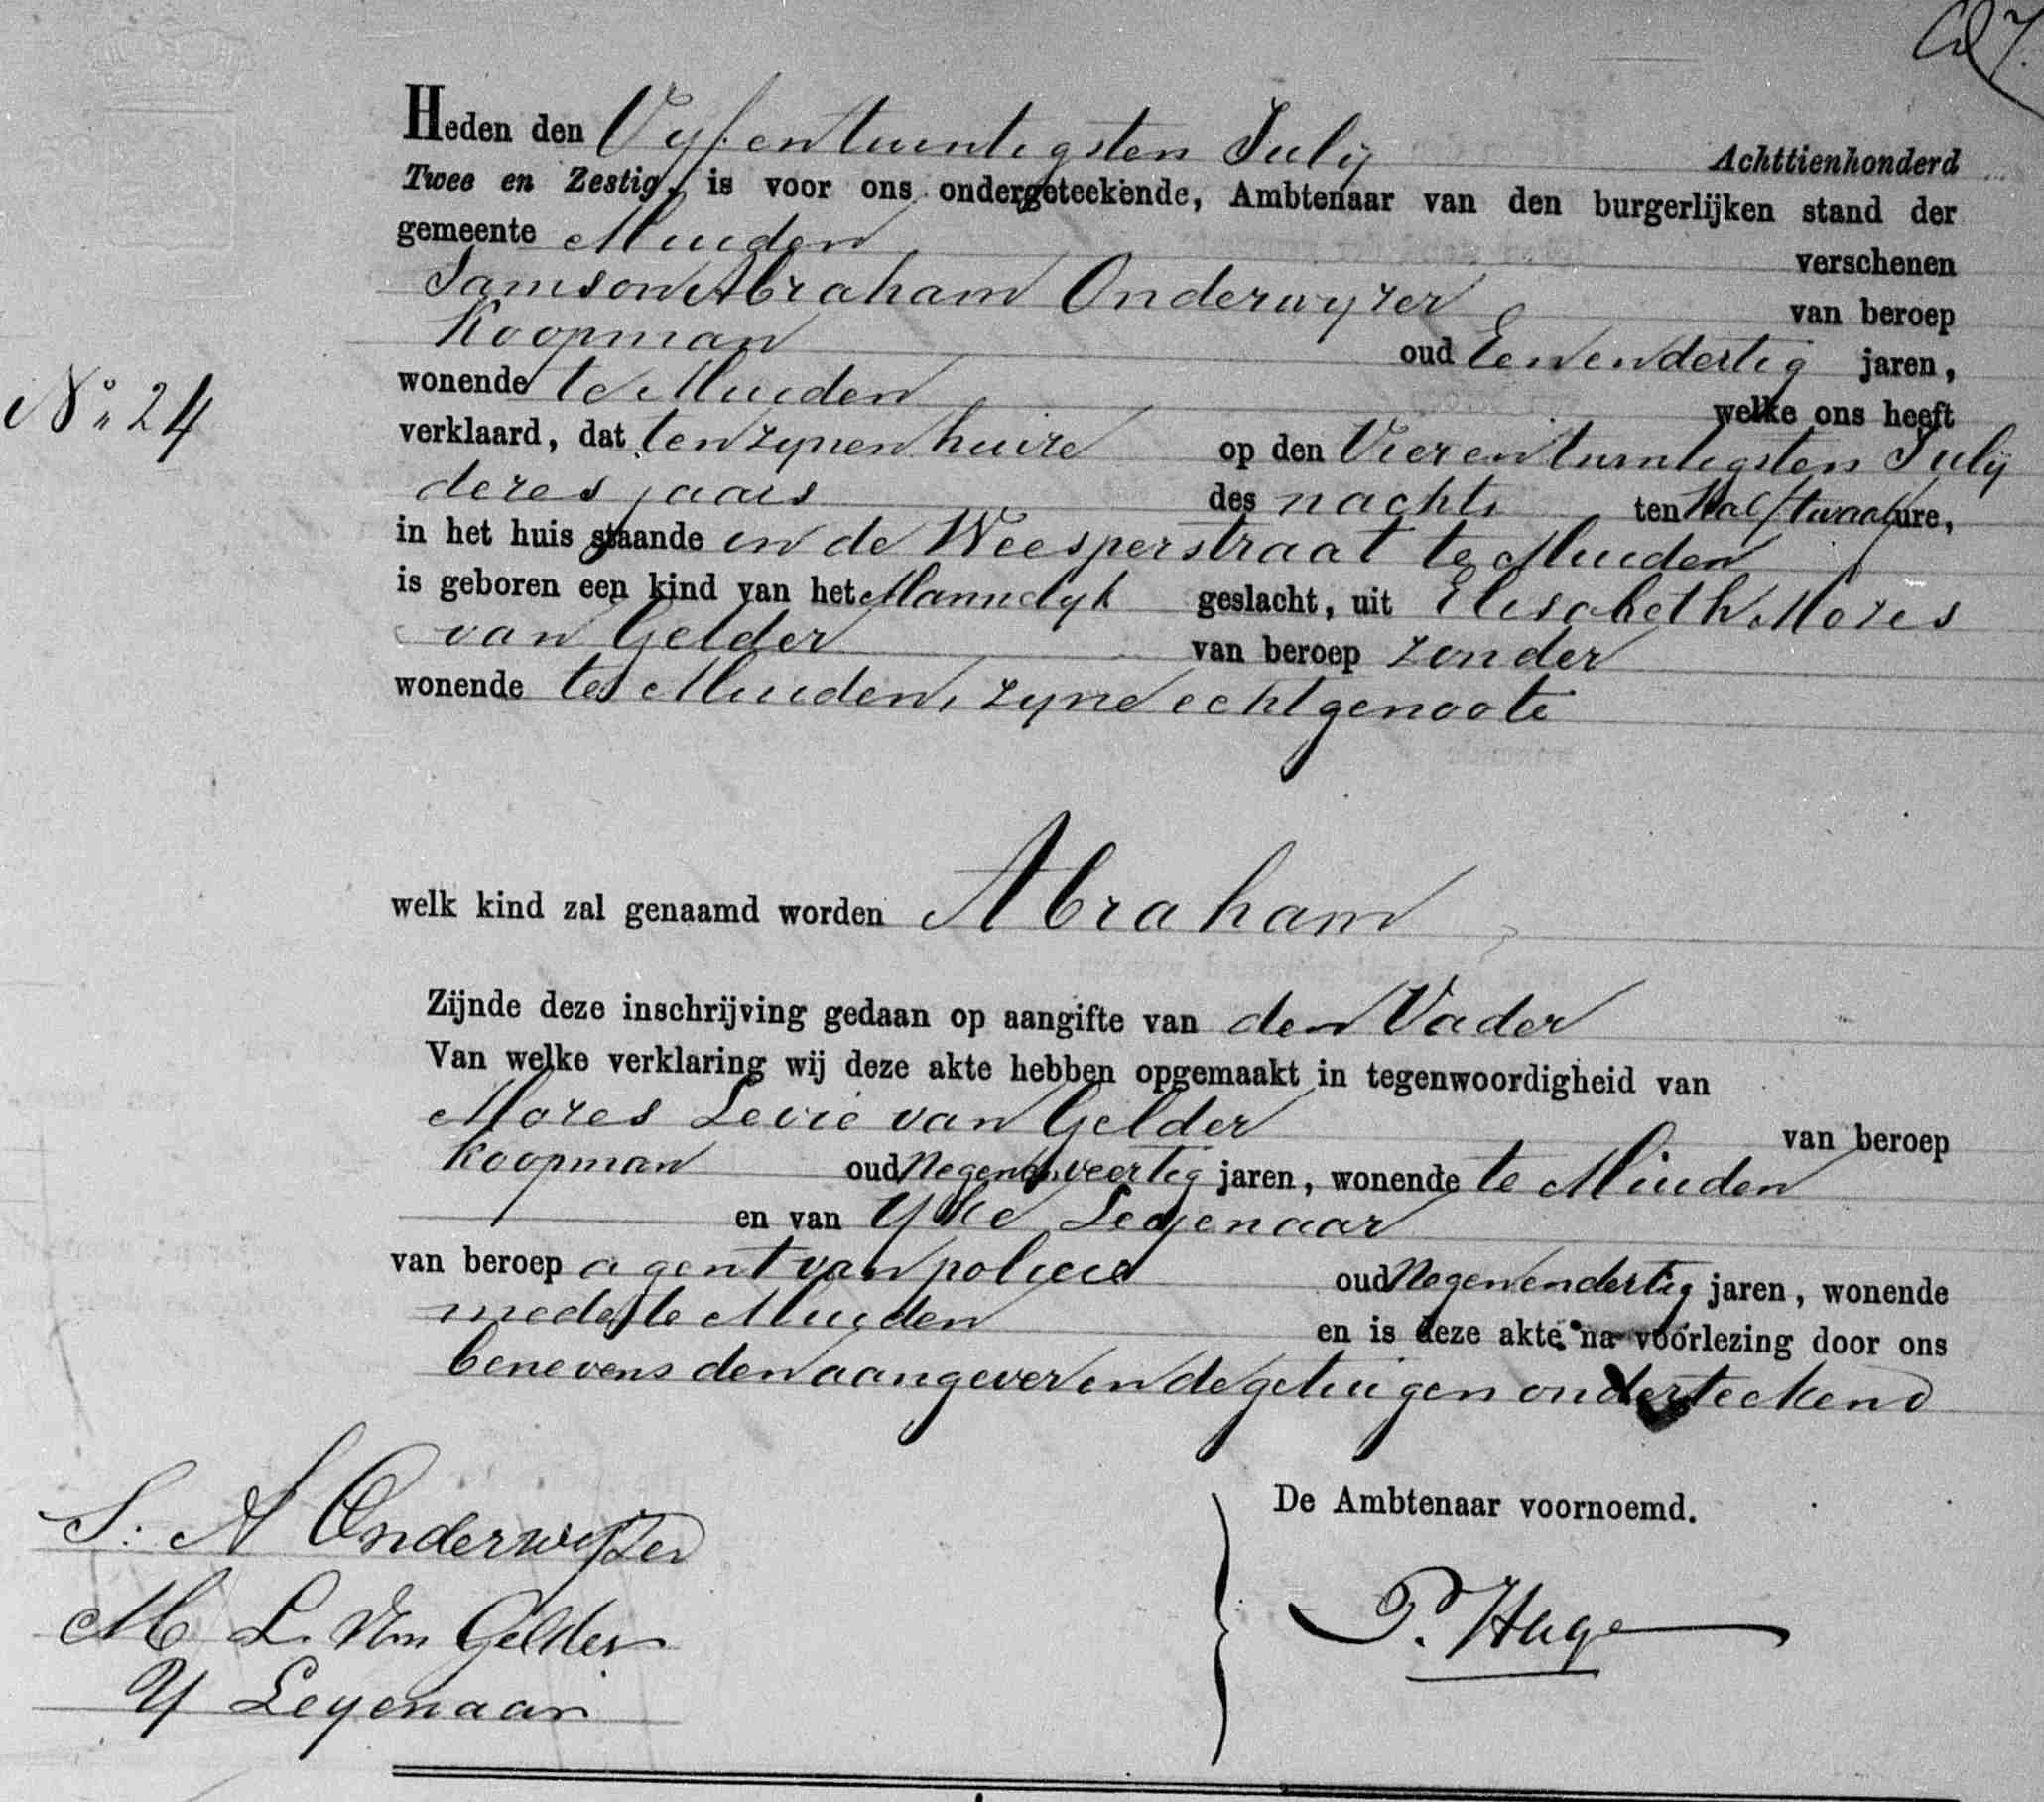 Heden den Vyf en twintigsten July Achttienhonderd
Twee en Zestig, is voor ons ondergeteekende, Ambtenaar van den burgerlijken stand der
gemeente Muiden verschenen
Samson Abraham Onderwyzer van beroep
Koopman oud Een en dertig jaren,
wonende te Muiden welke ons heeft
No 24
verklaard, dat ten zynen huize op den Vier en twintigsten July
dezes jaars des nachts ten Half twaalf ure,
in het huis staande in de Weesperstraat te Muiden
is geboren een kind van het Mannelyk geslacht, uit Elisabeth Mozes
van Gelder van beroep zonder
wonende te Muiden, zyne echtgenoote
welk kind zal genaamd worden Abraham
Zijnde deze inschrijving gedaan op aangifte van den Vader
Van welke verklaring wij deze akte hebben opgemaakt in tegenwoordigheid van
Mozes Levie van Gelder van beroep
Koopman oud Negen en veertig jaren, wonende te Muiden
en van Yke Leyenaar
van beroep agent van policie oud Negen en dertig jaren, wonende
mede te Muiden en is deze akte na voorlezing door ons
benevens den aangever en de getuigen onderteekend
De Ambtenaar voornoemd.
S. A Onderwijzer
M L. Van Gelder
Y Leyenaar
P. Huge